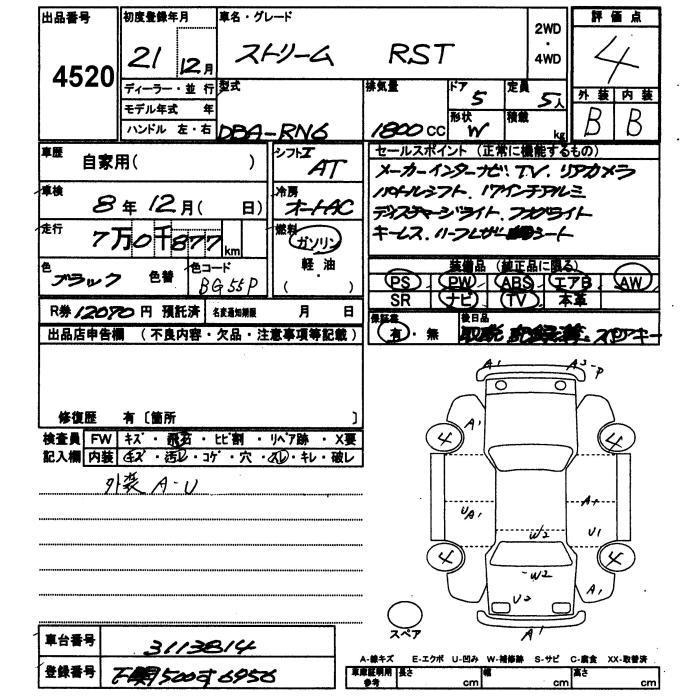 出品番号 4520
初度登録年月 21 12月
車名・グレード ストリーム RST
2WD・4WD
評価点 4
外装 内装
B B
ディーラー・並行
モデル年式 年
ハンドル 左・右
型式 DBA-RN6
排気量 1800CC
ドア 5
形状 W
定員 5人
積載 kg
車歴 自家用( )
シフト AT
車検 8年12月( 日)
冷房 オートAC
走行 7万0千877km
燃料 ガソリン・軽油
( )
色 ブラック 色替
色コード BG55P
セールスポイント (正常に機能するもの)
メーカーインターナビ TV. リアカメラ
パドルシフト. 17インチアルミ
ディスチャージライト. フォグライト
キーレス. ハーフレザーシート
装備品 (純正品に限る)
PS PW ABS エアB AW
SR ナビ TV 本革
R券 12090円 預託済 名変通知期限 月 日
保証書 有・無
後日品 取説 記録簿. スペアキー
出品店申告欄 (不良内容・欠品・注意事項等記載)
修復歴 有〔箇所 〕
検査員記入欄
FW キズ・飛石・ヒビ割・リペア跡・X要
内装 キズ・汚レ・コゲ・穴・スレ・キレ・破レ
外装 A-U
A1 A3-P
A1
4 4
UA1 A1
W2 U1
4 4
W2
U2 A1
A1
スペア
車台番号 3113814
登録番号 下関500す6956
A-線キズ E-エクボ U-凹み W-補修跡 S-サビ C-腐食 XX-取替済
車庫証明用参考 長さ cm 幅 cm 高さ cm